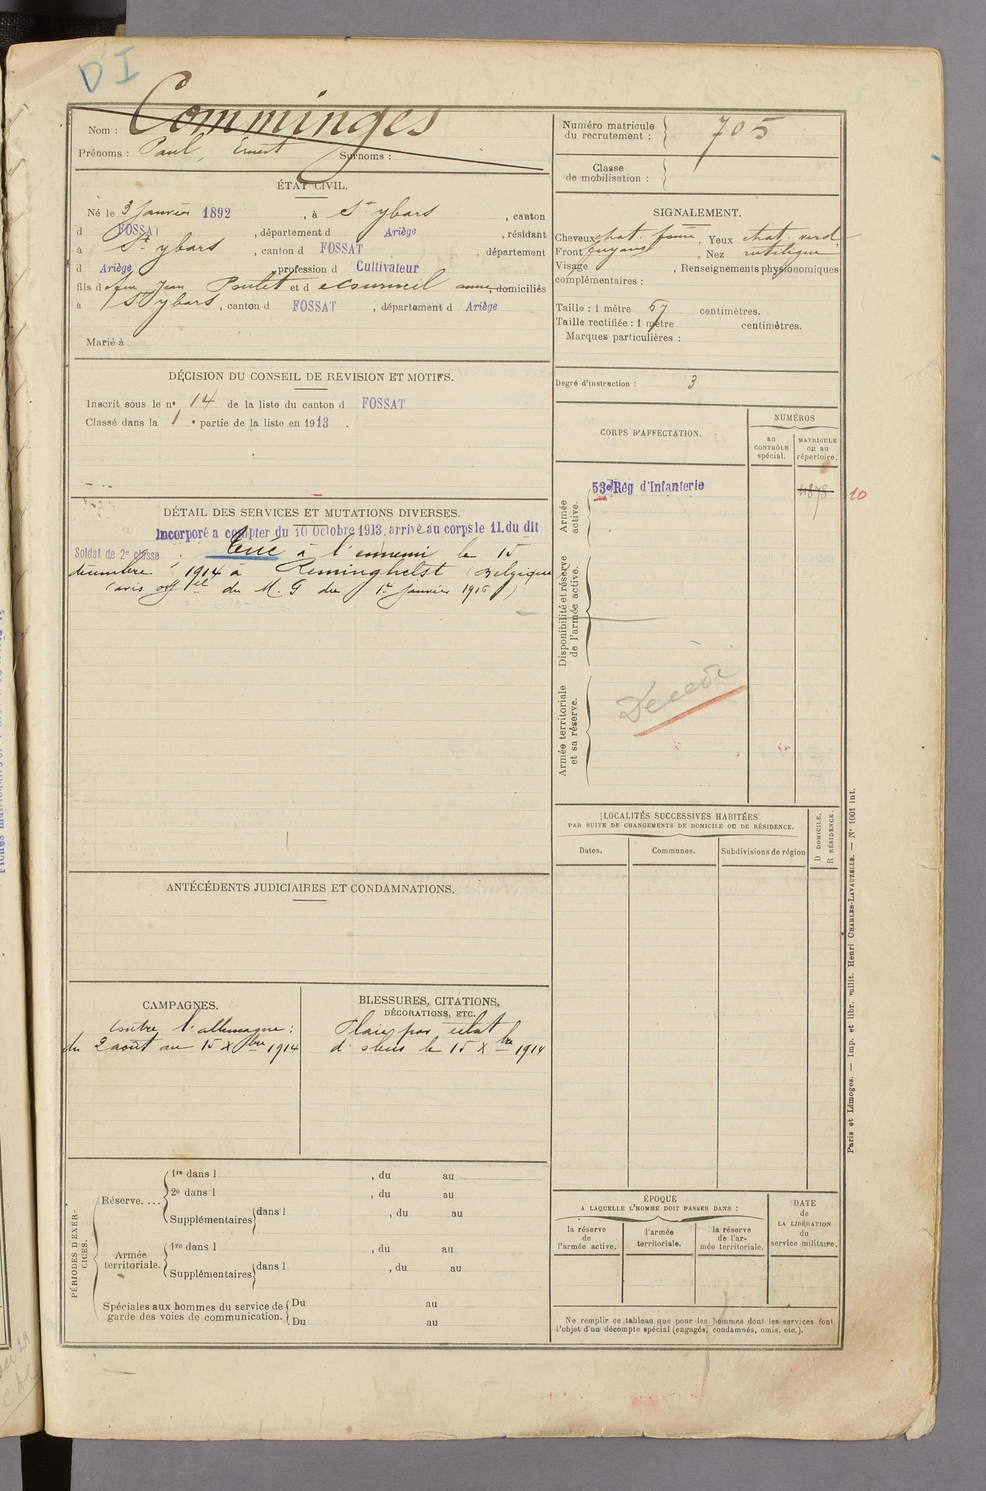 D I
Nom : Comminges
Prénoms : Paul, Ernest Surnoms :
ÉTAT CIVIL.
Né le 3 Janvier 1892, à St ybars, canton
d FOSSAT, département d Ariège, résidant
à St ybars, canton d FOSSAT, département
d Ariège, profession d Cultivateur
fils de feu Jean et d domiciliés
à St ybars, canton d FOSSAT, département d Ariège
Marié à
DÉCISION DU CONSEIL DE REVISION ET MOTIFS.
Inscrit sous le nº 14 de la liste du canton d FOSSAT
Classé dans la 1 e partie de la liste en 1913.
DÉTAIL DES SERVICES ET MUTATIONS DIVERSES.
Incorporé a compter du 10 Octobre 1913. arrivé au corps le 11. du dit
Soldat de 2e classe. Tué à l'ennemi le 15
décembre 1914 à Reminghelst (Belgique
(avis offel du M. G du 1er janvier 1916)
ANTÉCÉDENTS JUDICIAIRES ET CONDAMNATIONS.
CAMPAGNES.
Contre l'allemagne :
du 2 août au 15 Xbre 1914
BLESSURES, CITATIONS,
DÉCORATIONS, ETC.
Plaie par eclat
d'obus le 15 Xbre 1914
PÉRIODES D'EXERCICES.
Réserve....
1re dans l , du au
2e dans l , du au
Supplémentaires dans l , du au
Armée territoriale.
1re dans l , du au
Supplémentaires dans l , du au
Spéciales aux hommes du service de garde des voies de communication.
Du au
Du au
Numéro matricule
du recrutement : 705
Classe
de mobilisation :
SIGNALEMENT.
Cheveux chat. foncé, Yeux chat. verd
Front fuyant, Nez rectiligne
Visage , Renseignements physionomiques
complémentaires :
Taille : 1 mètre 57 centimètres.
Taille rectifiée : 1 mètre centimètres.
Marques particulières :
Degré d'instruction : 3
CORPS D'AFFECTATION.
NUMÉROS
au
CONTRÔLE
spécial.
MATRICULE
ou au
répertoire.
Armée
active.
53e Rég d'Infanterie
4878
10
Disponibilité et réserve
de l'armée active.
Armée territoriale
et sa réserve.
Décédé
LOCALITÉS SUCCESSIVES HABITÉES
PAR SUITE DE CHANGEMENTS DE DOMICILE OU DE RÉSIDENCE.
Dates.
Communes.
Subdivisions de région
D DOMICILE.
R RÉSIDENCE.
ÉPOQUE
A LAQUELLE L'HOMME DOIT PASSER DANS :
la réserve
de
l'armée active.
l'armée
territoriale.
la réserve
de l'ar-
mée territoriale.
DATE
de
LA LIBÉRATION
du
service militaire.
Ne remplir ce tableau que pour les hommes dont les services font
l'objet d'un décompte spécial (engagés, condamnés, omis, etc.).
Paris et Limoges. — Imp. et libr. milit. Henri CHARLES-LAVAUZELLE. — Nº 1001 int.